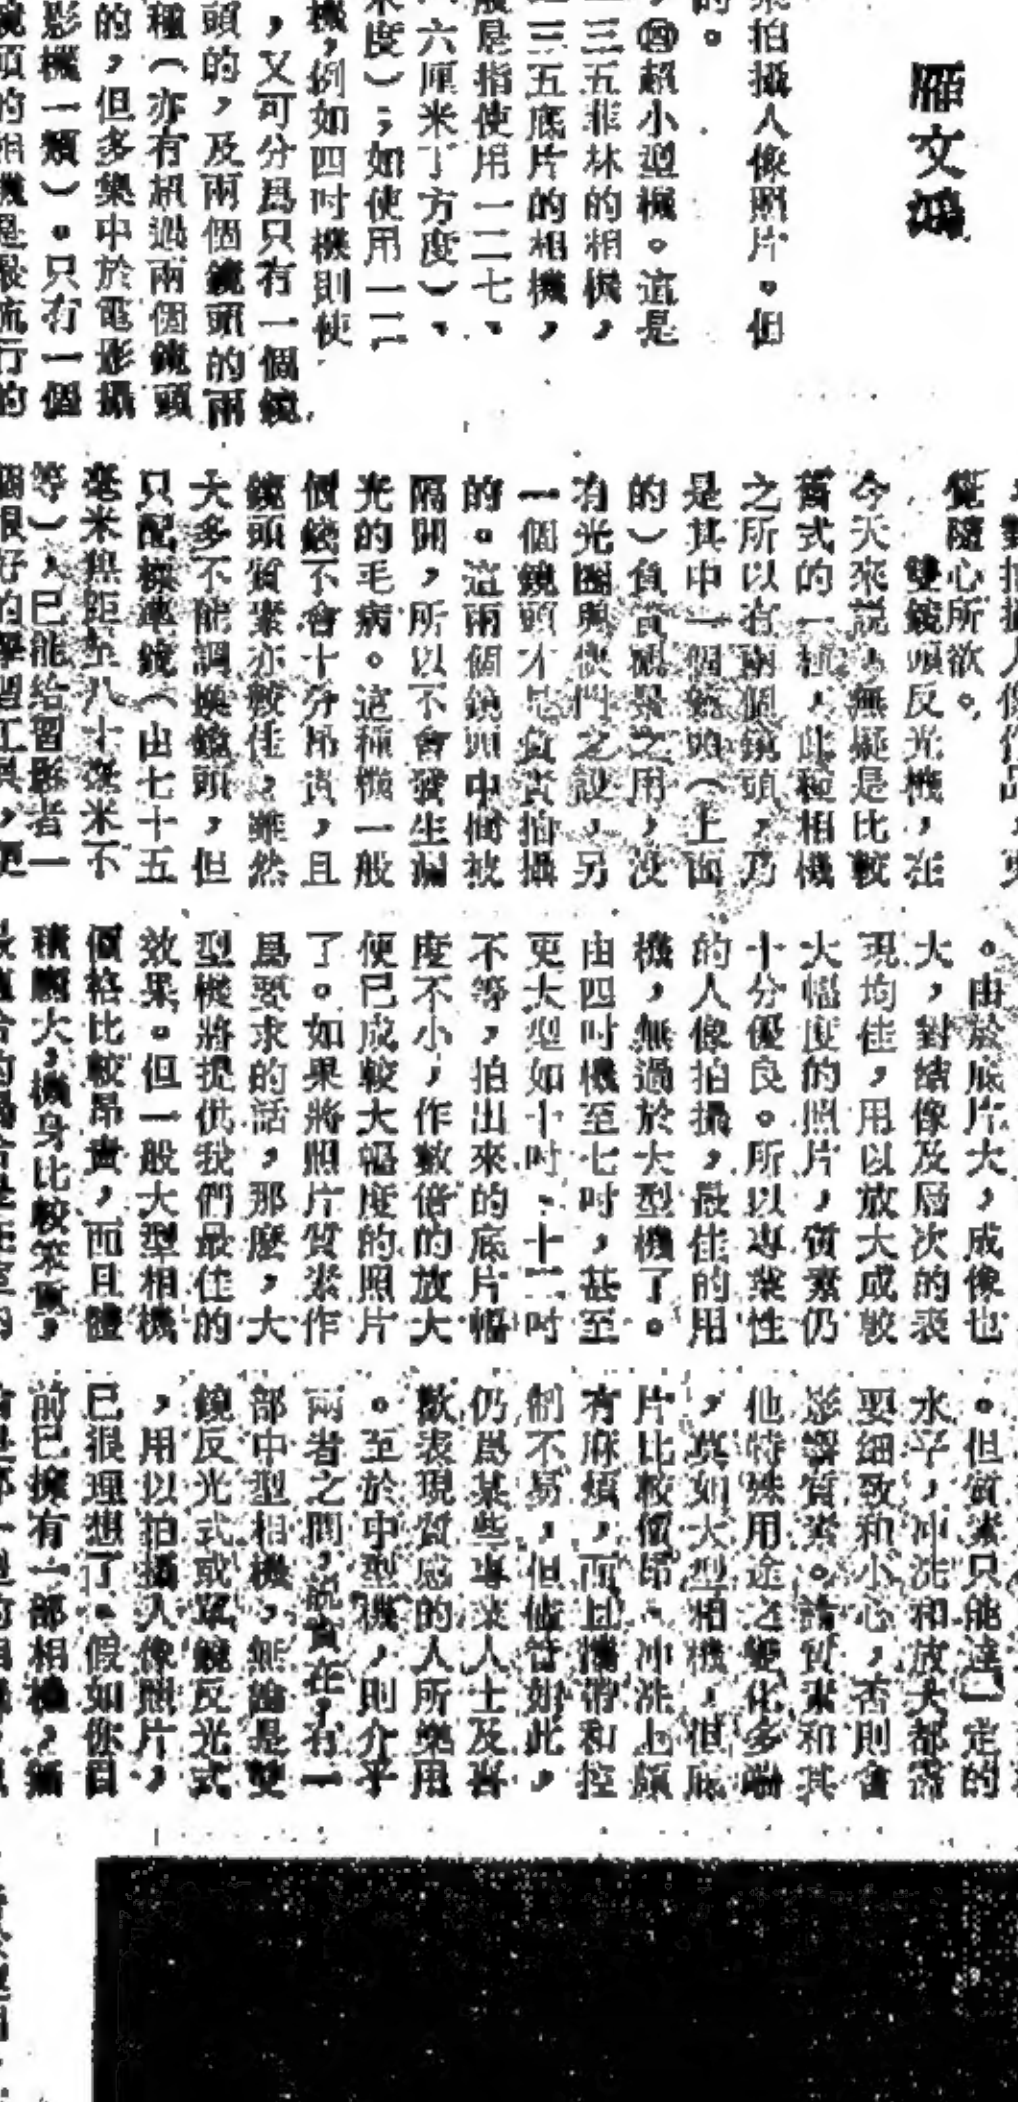 雁文鴻
來拍攝人像照片。但
的。
，㈣超小型機。這是
三五菲林的相機，
三五底片的相機，
般是指使用一二七、
六厘米丁方度）、
米度）；如使用一二
機，例如四吋機則使
，又可分爲只有一個鏡
頭的，及兩個鏡頭的兩
種（亦有超過兩個鏡頭
的，但多集中於電影攝
影機一類）。只有一個
鏡頭的相機是最流行的
覺隨心所欲。
雙鏡頭反光機，在
今天來說，無疑是比較
舊式的一種，此種相機
之所以有兩個鏡頭，乃
是其中一個鏡頭（上面
的）負責觀景之用，沒
有光圈與快門之設，另
一個鏡頭才是負責拍攝
的。這兩個鏡頭中間被
隔開，所以不會發生漏
光的毛病。這種機一般
價錢不會十分昂貴，且
鏡頭質素亦較佳，雖然
大多不能調換鏡頭，但
只配標準鏡（由七十五
毫米焦距至八十毫米不
等），已能給習影者一
個很好的學習工具，更
。由於底片大，成像也
大，對結像及層次的表
現均佳，用以放大成較
大幅度的照片，質素仍
十分優良。所以專業性
的人像拍攝，最佳的用
機，無過於大型機了。
由四吋機至七吋，甚至
更大型如十吋、十二吋
不等，拍出來的底片幅
度不小，作數倍的放大
便已成較大幅度的照片
了。如果將照片質素作
爲要求的話，那麼，大
型機將提供我們最佳的
效果。但一般大型相機
價格比較昂貴，而且體
積龐大，機身比較笨重，
最適合的場合是在室內
。但質素只能達一定的
水平，冲洗和放大都需
要細致和小心，否則會
影響質素。論質素和其
他特殊用途之變化多端
，莫如大型相機，但底
片比較價昂，冲洗上頗
有麻煩，而且攜帶和控
制不易，但儘管如此，
仍爲某些專業人士及喜
歡表現質感的人所樂用
。至於中型機，則介乎
兩者之間，說實在，有一
部中型相機，無論是雙
鏡反光式或單鏡反光式
，用以拍攝人像照片，
已很理想了。假如你目
前已擁有一部相機，無